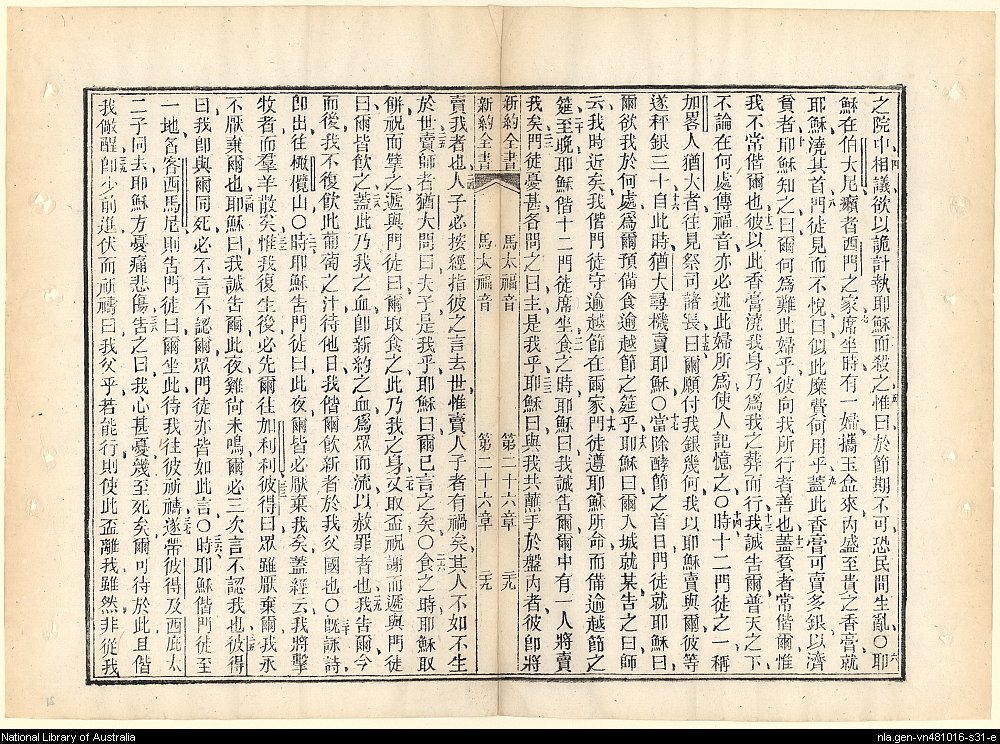 之院中相議欲以詭計執耶穌而殺之惟曰於節期不可恐民間生亂○耶
穌在伯大尼癩者西門之家席坐時有一婦攜玉盒來內盛至貴之香膏就
耶穌澆其首門徒見而不悅曰似此糜費何用乎蓋此香膏可賣多銀以濟
貧者耶穌知之曰爾何為難此婦乎彼向我所行者善也蓋貧者常偕爾惟
我不常偕爾也彼以此香膏澆我身乃為我之葬而行我誠告爾普天之下
不論在何處傳福音亦必述此婦所為使人記憶之○時十二門徒之一稱
加畧人猶大者往見祭司諸長曰爾願付我銀幾何我以耶穌賣與爾彼等
遂秤銀三十自此時猶大尋機賣耶穌○當除酵節之首日門徒就耶穌曰
爾欲我於何處為爾預備食逾越節之筵乎耶穌曰爾入城就某告之曰師
云我時近矣我偕門徒守逾越節在爾家門徒遵耶穌所命而備逾越節之
筵至晚耶穌偕十二門徒席坐食之時耶穌曰我誠告爾爾中有一人將賣
我矣門徒憂甚各問之曰主是我乎耶穌曰與我共蘸手於盤內者彼即將
新約全書 馬太福音 第二十六章 二九
新約全書 馬太福音 第二十六章 二九
賣我者也人子必按經指彼之言去世惟賣人子者有禍矣其人不如不生
於世賣師者猶大問曰夫子是我乎耶穌曰爾已言之矣○食之時耶穌取
餅祝而擘之遞與門徒曰爾取食之此乃我之身又取盃祝謝而遞與門徒
曰爾皆飲之蓋此乃我之血即新約之血為眾而流以赦罪者也我告爾今
而後我不復飲此葡萄之汁待他日我偕爾飲新者於我父國也○既詠詩
即出往橄欖山○時耶穌告門徒曰此夜爾皆必厭棄我矣蓋經云我將擊
牧者而羣羊散矣惟我復生後必先爾往加利利彼得曰眾雖厭棄爾我永
不厭棄爾也耶穌曰我誠告爾此夜雞尚未鳴爾必三次言不認我也彼得
曰我即與爾同死必不言不認爾眾門徒亦皆如此言○時耶穌偕門徒至
一地名客西馬尼則告門徒曰爾坐此待我往彼祈禱遂帶彼得及西庇太
二子同去耶穌方憂痛悲傷告之曰我心甚憂幾至死矣爾可待於此且偕
我儆醒即少前進伏而祈禱曰我父乎若能行則使此盃離我雖然非從我
National Library of Australia
nla.gen-vn481016-s31-e